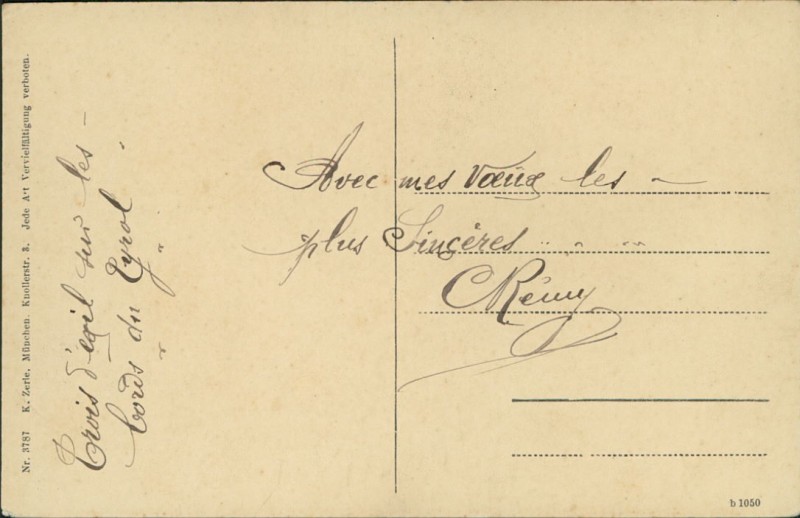 Nr. 3787 K. Zerle, München. Knollerstr. 3. Jede Art Vervielfältigung verboten.
Trois d'exil sur les -
bords du Tyrol .
Avec mes Vœux les -
plus Sincères .. . ..
C Rémy
b 1050